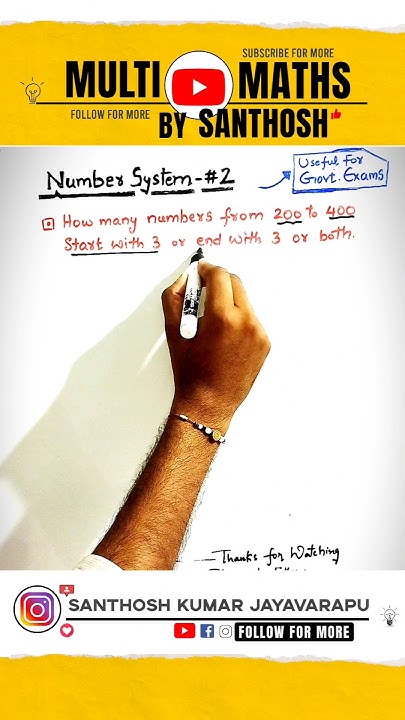 SUBSCRIBE FOR MORE
MULTI MATHS
FOLLOW FOR MORE
BY SANTHOSH
Number System-#2
Useful For
Govt. Exams
How many numbers from 200 to 400
Start with 3 or end with 3 or both.
Thanks for Watching
SANTHOSH KUMAR JAYAVARAPU
FOLLOW FOR MORE